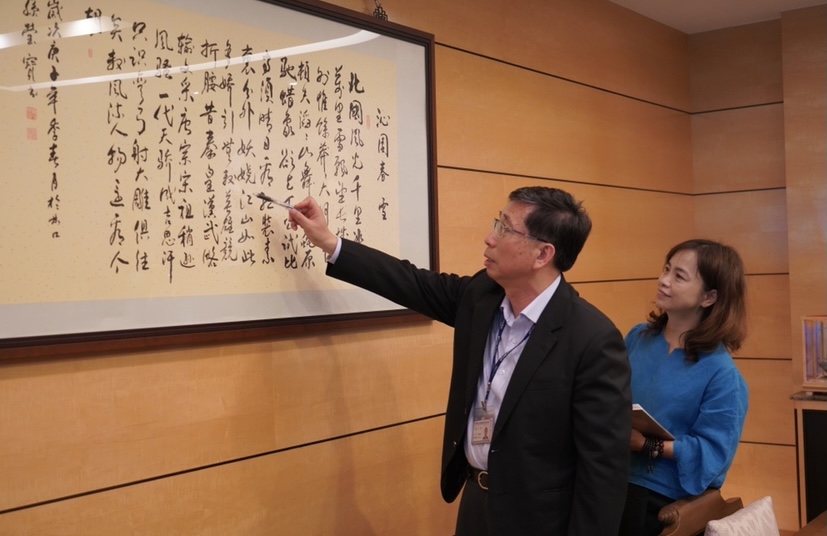 沁園春 雪
北國風光千里冰
萬里雪飄望長城
外惟餘莽大河
頓失滔々山舞銀蛇原
馳蠟象欲與天公試比
高須晴日看紅裝素
裹分外妖嬈江山如此
多嬌引無數英雄競
折腰昔秦皇漢武略
輸文采唐宗宋祖稍遜
風騷一代天驕成吉思汗
只識彎弓射大雕俱往
矣數風流人物還看今
朝
歲次庚子年季春月於
孫瑩寶